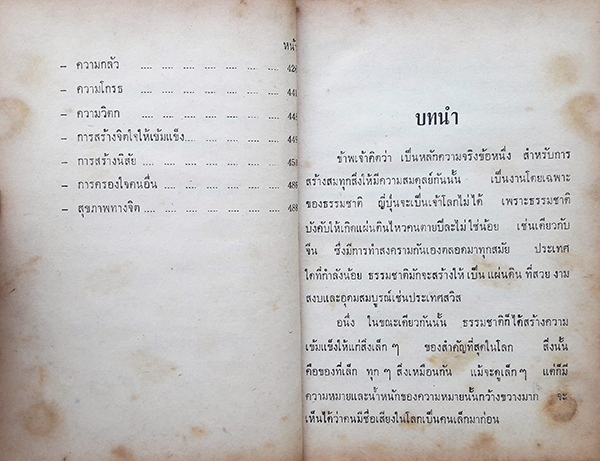 หน้า
– ความกลัว .... .... .... .... .... .... ....
– ความโกรธ .... .... .... .... .... .... 441
– ความวิตก .... .... .... .... .... .... 445
– การสร้างจิตใจให้เข้มแข็ง.... .... .... .... 449
– การสร้างนิสัย .... .... .... .... .... ....
– การครองใจคนอื่น .... .... .... .... ....
– สุขภาพทางจิต .... .... .... .... ....
บทนำ
ข้าพเจ้าคิดว่า เป็นหลักความจริงข้อหนึ่ง สำหรับการ
สร้างสมทุกสิ่งให้มีความสมดุลย์กันนั้น เป็นงานโดยเฉพาะ
ของธรรมชาติ ญี่ปุ่นจะเป็นเจ้าโลกไม่ได้ เพราะธรรมชาติ
บังคับให้เกิดแผ่นดินไหวคนตายปีละไม่ใช่น้อย เช่นเดียวกับ
จีน ซึ่งมีการทำสงครามกันเองตลอดมาทุกสมัย ประเทศ
ใดที่กำลังน้อย ธรรมชาติมักจะสร้างให้ เป็น แผ่นดิน ที่สวย งาม
สงบและอุดมสมบูรณ์เช่นประเทศสวิส
อนึ่ง ในขณะเดียวกันนั้น ธรรมชาติก็ได้สร้างความ
เข้มแข็งให้แก่สิ่งเล็ก ๆ ของสำคัญที่สุดในโลก สิ่งนั้น
คือของที่เล็ก ทุก ๆ สิ่งเหมือนกัน แม้จะดูเล็ก ๆ แต่ก็มี
ความหมายและน้ำหนักของความหมายนั้นกว้างขวางมาก จะ
เห็นได้ว่าคนมีชื่อเสียงในโลกเป็นคนเล็กมาก่อน